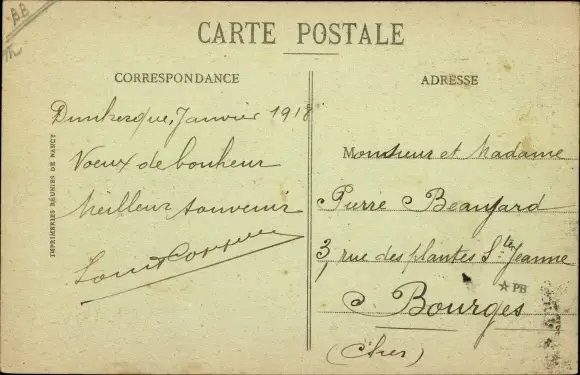 BB
CARTE POSTALE
CORRESPONDANCE
Dunkerque, Janvier 1918
Voeux de bonheur
Meilleur souvenir
Louis
IMPRIMERIES RÉUNIES DE NANCY
ADRESSE
Monsieur et Madame
Pierre Beaujard
3, rue des plantes Ste Jeanne
PB
Bourges
(Cher)